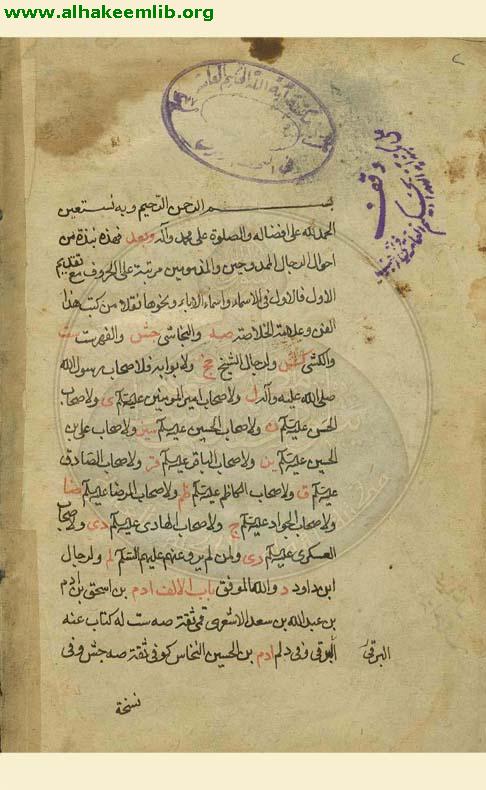 www.alhakeemlib.org
بسم الرحمن الرحيم وبه نستعين
الحمد لله على افضاله والصلوة على محمد وآله وبعد فهذه نبذة من
احوال الرجال الممدوحين والمذمومين مرتبة على الحروف مع تقديم
الاول فالاول في الاسماء واسماء الاباء ونحوها نقلا من كتب هذا
الفن وعلامة الخلاصة صه والنجاشي جش والفهرست ست
والكشي كش ورجال الشيخ جخ ولابوابه فلاصحاب رسول الله
صلى الله عليه وآله ل ولاصحاب امير المؤمنين عليه السلم ى ولاصحاب
الحسن عليه السلم ن ولاصحاب الحسين عليه السلم سين ولاصحاب علي بن
الحسين عليه السلم ين ولاصحاب الباقر عليه السلم قر ولاصحاب الصادق
عليه السلم ق ولاصحاب الكاظم عليه السلم ظم ولاصحاب الرضا عليه السلم ضا
ولاصحاب الجواد عليه السلم ج ولاصحاب الهادي عليه السلم دى ولاصحاب
العسكري عليه السلم دى ولمن لم يرو عنهم عليهم السلم لم ولرجال
ابن داود د والله الموفق باب الالف ادم بن اسحق بن ادم
بن عبد الله بن سعد الاشعري قمي ثقة صه ست له كتاب عنه
البرقي وفي د لم ادم بن الحسين النخاس كوفي ثقة صه جش وفي
البرقي
نسخة
وقف